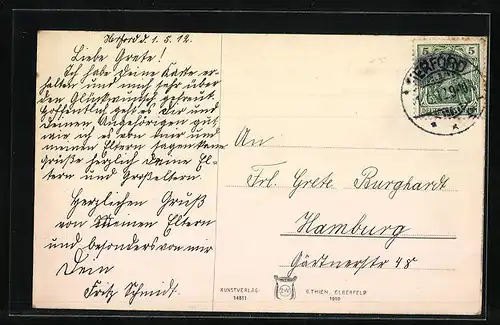 Herford d. 1. 5. 12.
Liebe Grete!
Ich habe Deine Karte er-
halten und mich sehr über
den Glückwunsch gefreut.
Hoffentlich geht es Dir und
Deinen Angehörigen gut,
wir ich es von mir und
meinen Eltern sagen kann
Grüße herzlich Deine El-
tern und Großeltern.
Herzlichen Gruß
von Meinen Eltern
und besonders von mir
Dein
Fritz Schmidt.
5 5
HERFORD
An
Frl. Grete Burghardt
Hamburg
Gärtnerstr 48
KUNSTVERLAG
14511
G. THIEN, ELBERFELD
1910